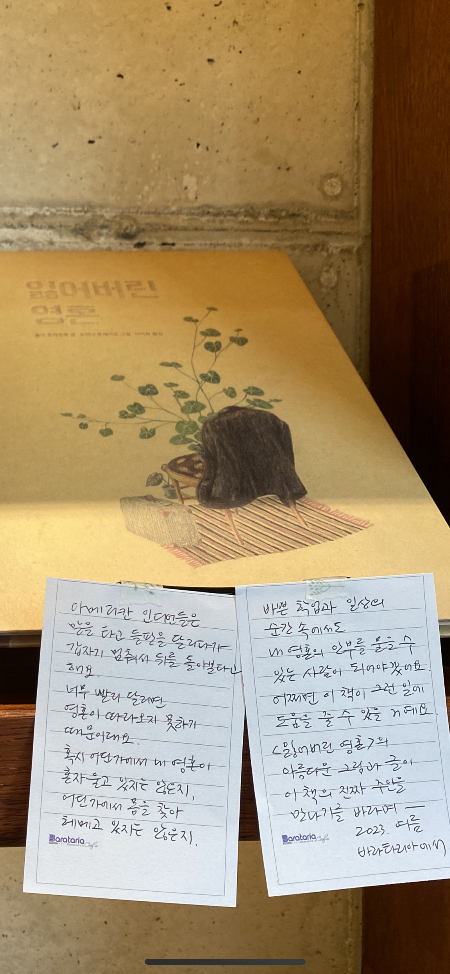 잃어버린
영혼
아메리칸 인디언들은
말을 타고 들판을 달리다가
갑자기 멈춰서 뒤를 돌아봤다고
해요
너무 빨리 달리면
영혼이 따라오지 못하기
때문이래요.
혹시 어딘가에서 내 영혼이
혼자 울고 있지는 않은지,
어딘가에서 몸을 찾아
헤메고 있지는 않은지.
Barataria
바쁜 학업과 일상의
순간 속에서도
내 영혼의 안부를 물을 수
있는 사람이 되어야겠어요
어쩌면 이 책이 그런 일에
도움을 줄 수 있을 거예요.
<잃어버린 영혼>의
아름다운 그림과 글이
이 책의 진짜 주인을
만나기를 바라며 —
2023. 여름
바라타리아에서
Barataria